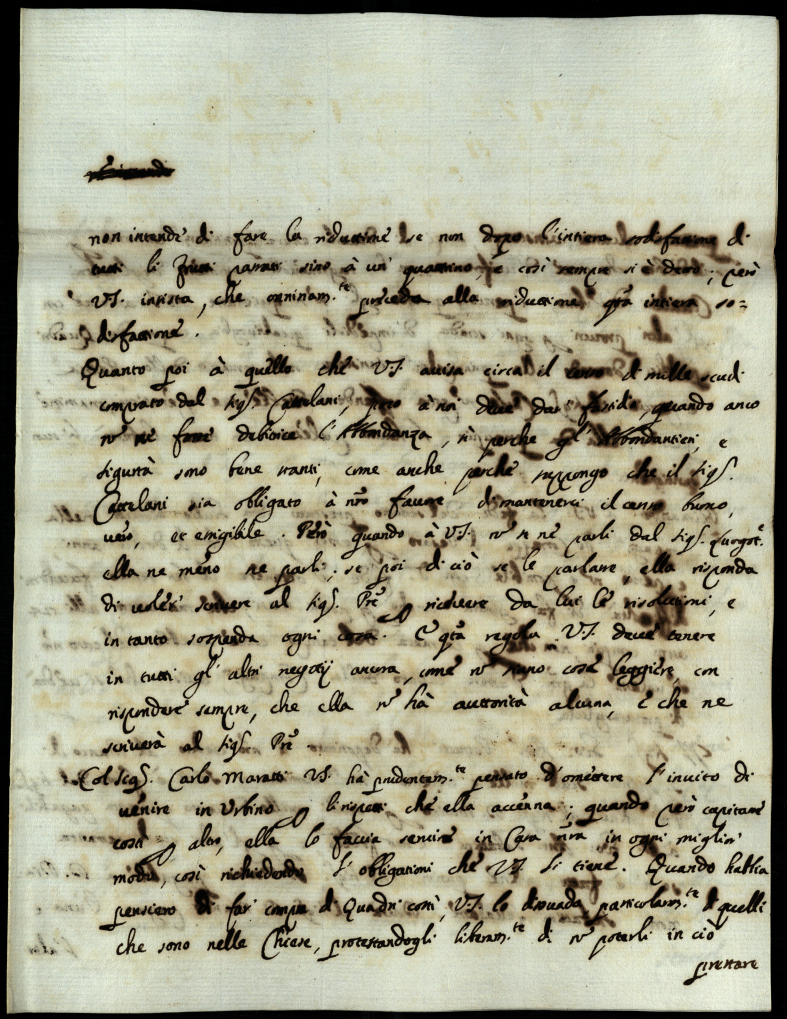 non intende di fare la riduttione se non dopo l'intiera sodisfattione di
tutti li frutti passati sino à un' quattrino e così sempre si è detto; però
VS. insista, che omninam.te preceda alla riduttione q̃ta intiera so=
disfattione.
Quanto poi à quello che VS. avisa circa il censo di mille scudi
comprato dal Sig.r Cattelani, poco à noi deve dar fastidio, quando anco
nõ ne fosse debitrice l'Abbondanza, sì perche gl' Abbondantieri, e
sigurtà sono bene stanti, come anche perche suppongo che il Sig.r
Cattelani sia obligato à nr̃o favore di mantenerci il censo buono,
vero, et esigibile. Però quando à VS. nõ se ne parli dal Sig.r
ella ne meno ne parli; se poi di ciò se le parlasse, ella risponda
di volerne scrivere al Sig.r Pr̃e e ricevere da lui le risolutioni, e
in tanto sospenda ogni cosa. E q̃ta regola VS. deve tenere
in tutti gl' altri negotij ancora, come nõ siano cose leggiere, con
rispondere sempre, che ella nõ hà auttorità alcuna, e che ne
scriverà al Sig.r Pr̃e.
Col Sig.r Carlo Maratti VS. hà prudentem.te pensato d'omettere l'invito di
venire in Urbino p li rispetti che ella accenna; quando però capitasse
costì p altro, ella lo faccia servire in Casa nr̃a in ogni miglior
modo, così richiedendo l'obligationi che VS. li tiene. Quando habbia
pensiero di far compra di Quadri costì, VS. lo dissuada, particolarm.te di quelli
che sono nelle Chiese, protestandogli liberam.te di nõ poterli in ciò
prestare